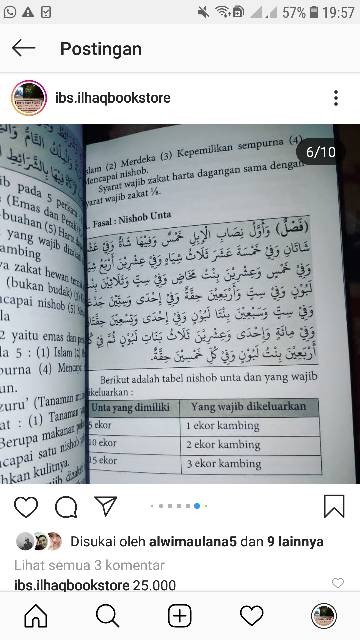 57% 19:57
Postingan
ibs.ilhaqbookstore
6/10
slam (2) Merdeka (3) Kepemilikan sempurna (4)
Mencapai nishob.
Syarat wajib zakat harta dagangan sama dengan
yarat wajib zakat
Fasal : Nishob Unta
(فَصْلٌ) وَأَوَّلُ نِصَابِ الْإِبِلِ خَمْسٌ وَفِيْهَا شَاةٌ وَفِيْ
شَاتَانِ وَفِيْ خَمْسَةَ عَشَرَ ثَلَاثُ شِيَاهٍ وَفِيْ عِشْرِيْنَ أَرْبَعُ
وَفِيْ خَمْسٍ وَعِشْرِيْنَ بِنْتُ مَخَاضٍ وَفِيْ سِتٍّ وَثَلَاثِيْنَ
لَبُوْنٍ وَفِيْ سِتٍّ وَأَرْبَعِيْنَ حِقَّةٌ وَفِيْ إِحْدَى وَسِتِّيْنَ
وَفِيْ سِتٍّ وَسَبْعِيْنَ بِنْتَا لَبُوْنٍ وَفِيْ إِحْدَى وَتِسْعِيْنَ حِقَّتَانِ
وَفِيْ مِائَةٍ وَإِحْدَى وَعِشْرِيْنَ ثَلَاثُ بَنَاتِ لَبُوْنٍ ثُمَّ فِيْ
أَرْبَعِيْنَ بِنْتُ لَبُوْنٍ وَفِيْ كُلِّ خَمْسِيْنَ حِقَّةٌ.
Berikut adalah tabel nishob unta dan yang wajib
ikeluarkan :
Unta yang dimiliki Yang wajib dikeluarkan
5 ekor 1 ekor kambing
10 ekor 2 ekor kambing
15 ekor 3 ekor kambing
ib pada 5 perkara
(Emas dan Perak)
-buahan (5) Harta
yang wajib
ambing
a zakat hewan ternak
(bukan budak) (3)
capai nishob (5)
la
2 yaitu emas dan
la 5 : (1) Islam (2)
urna (4) Mencapai
un.
zuru' (Tanaman
at : (1) Tanaman
Berupa makanan
capai satu nishob
hkan kulitnya.
Disukai oleh alwimaulana5 dan 9 lainnya
Lihat semua 3 komentar
ibs.ilhaqbookstore 25.000